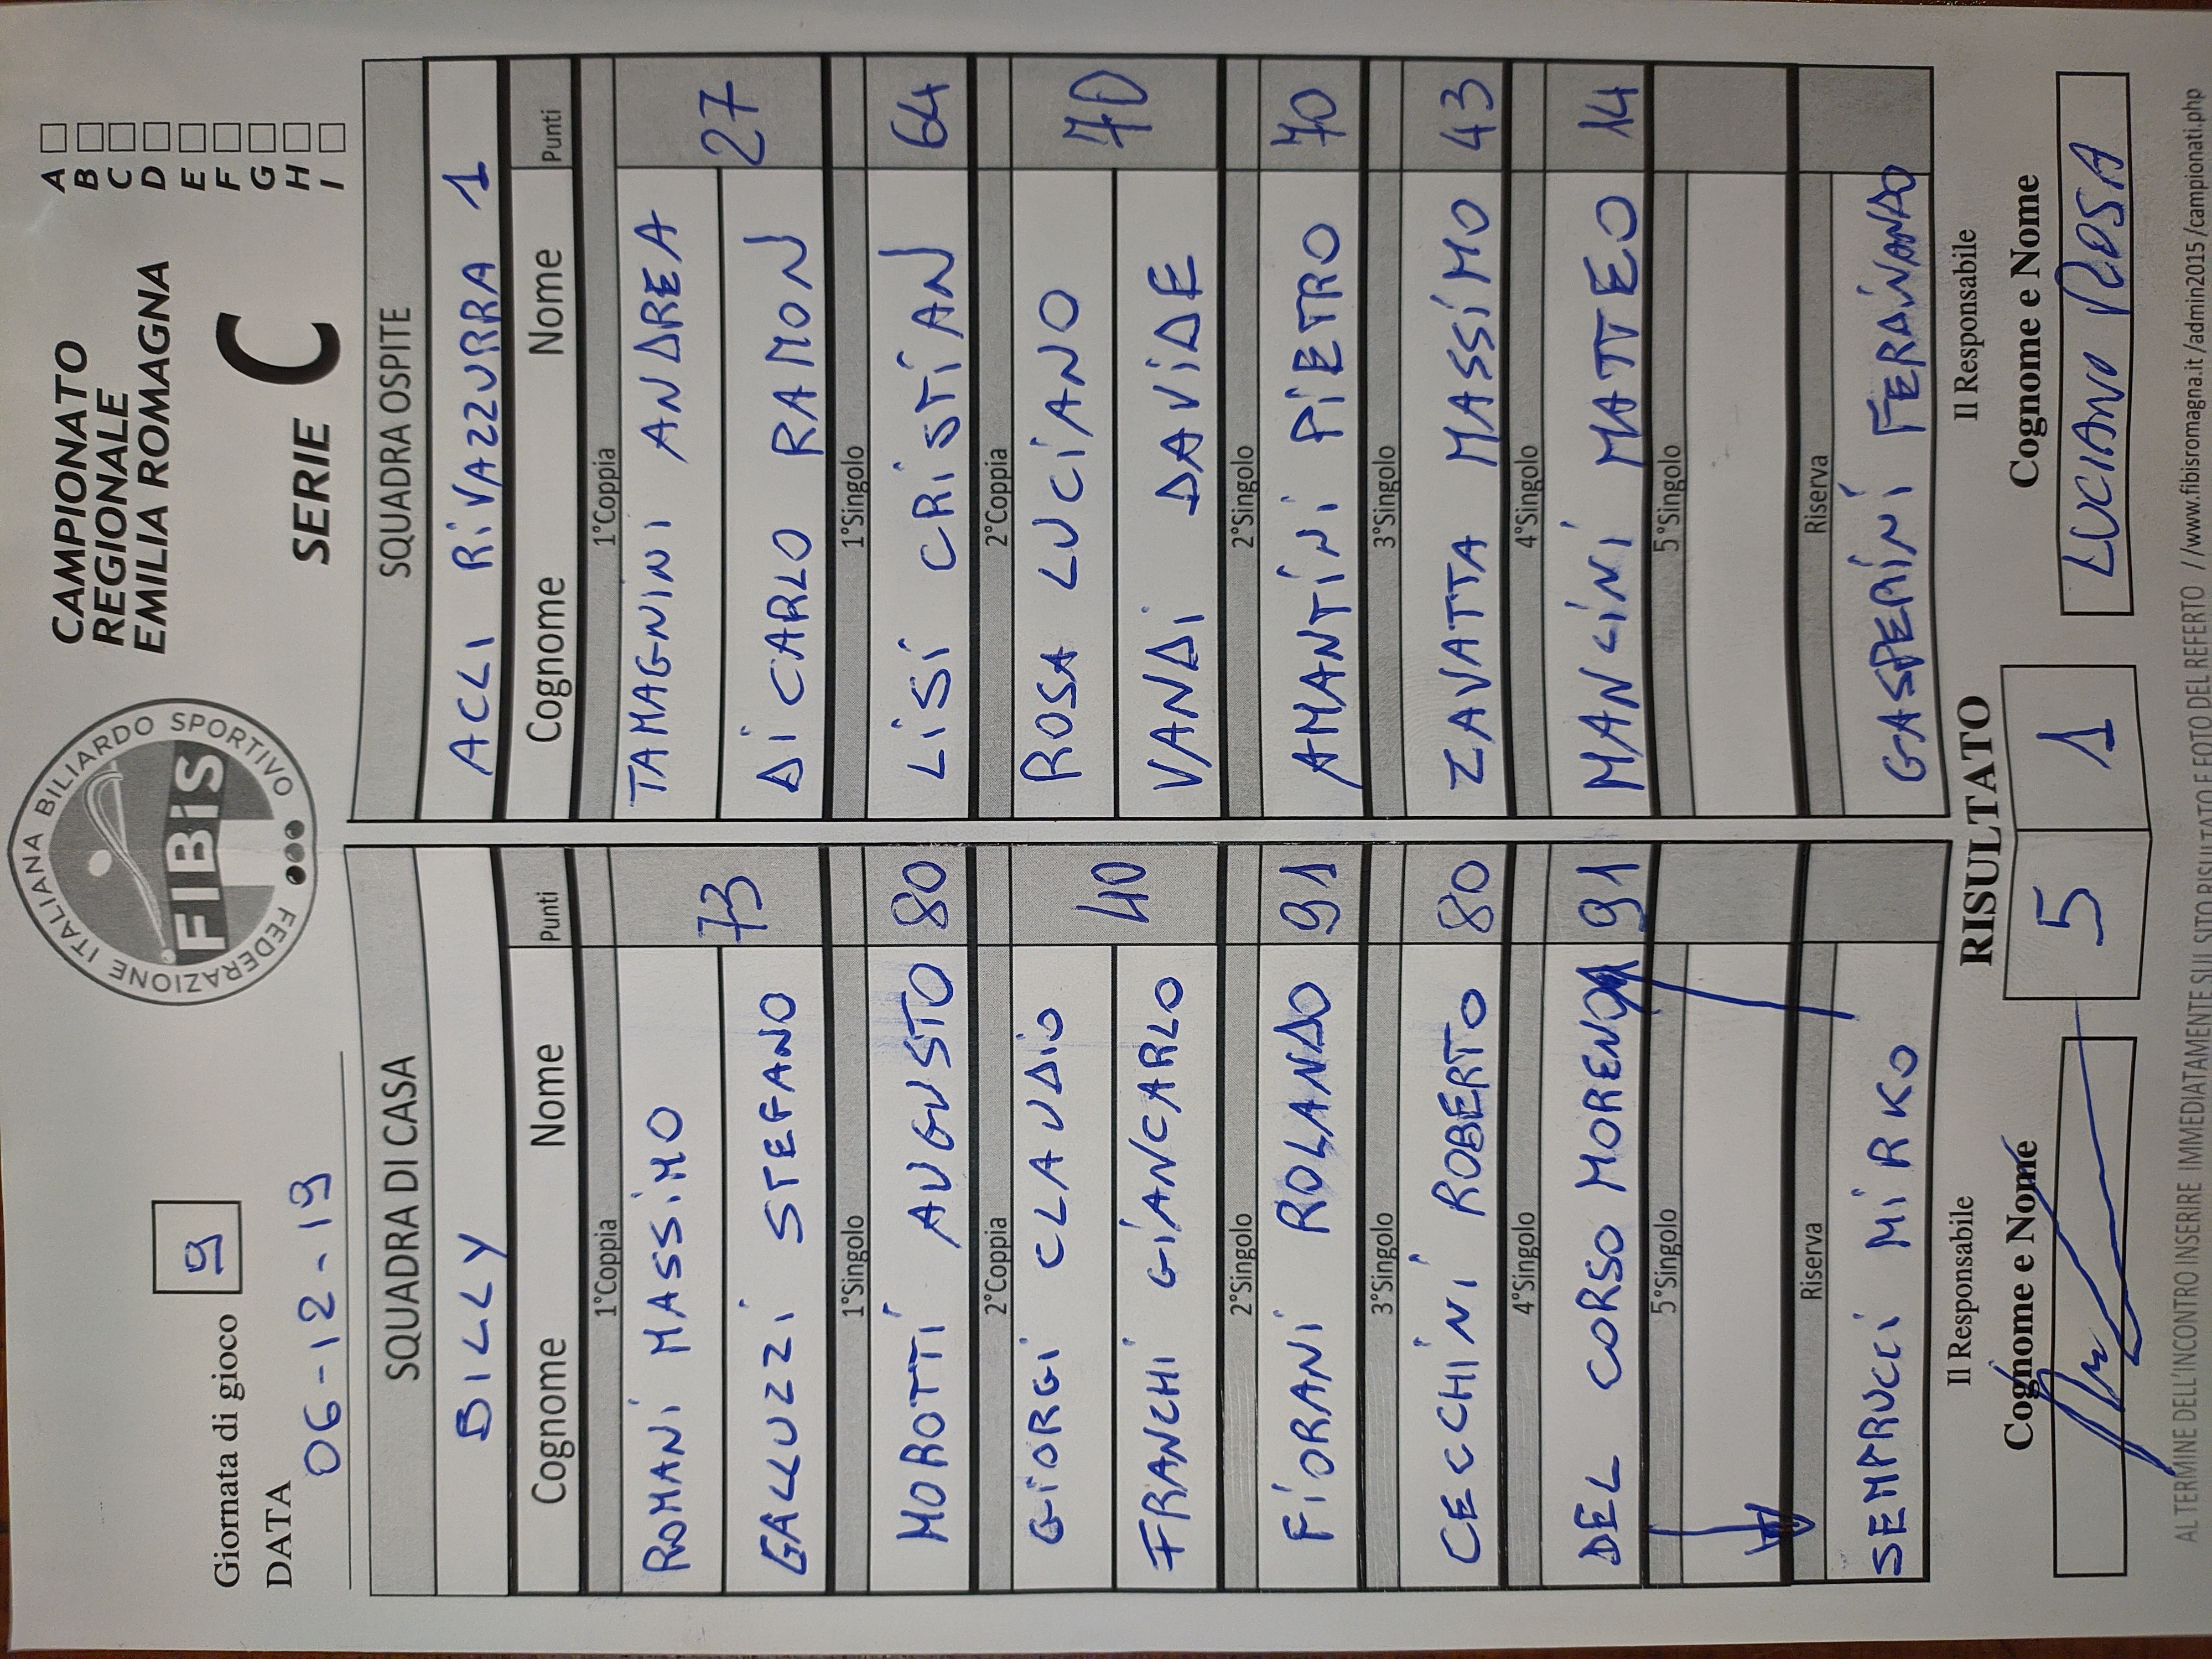 FEDERAZIONE ITALIANA BILIARDO SPORTIVO
FIBiS
CAMPIONATO
REGIONALE
EMILIA ROMAGNA
SERIE C
A
B
C
D
E
F
G
H
I
Giornata di gioco 9
DATA 06-12-19
SQUADRA DI CASA
BILLY
Cognome Nome Punti
1°Coppia
ROMANI MASSIMO
GALLUZZI STEFANO
73
1°Singolo
MOROTTI AUGUSTO 80
2°Coppia
GIORGI CLAUDIO
FRANCHI GIANCARLO
40
2°Singolo
FIORANI ROLANDO 91
3°Singolo
CECCHINI ROBERTO 80
4°Singolo
DEL CORSO MORENO 91
5°Singolo
Riserva
SEMPRUCCI MIRKO
SQUADRA OSPITE
ACLI RIVAZZURRA 1
Cognome Nome Punti
1°Coppia
TAMAGNINI ANDREA
DI CARLO RAMON
27
1°Singolo
LISI CRISTIAN 64
2°Coppia
ROSA LUCIANO
VANDI DAVIDE
70
2°Singolo
AMANTINI PIETRO 70
3°Singolo
ZAVATTA MASSIMO 43
4°Singolo
MANCINI MATTEO 14
5°Singolo
Riserva
GASPERINI
Il Responsabile
Cognome e Nome
RISULTATO
5 1
Il Responsabile
Cognome e Nome
LUCIANO ROSA
AL TERMINE DELL'INCONTRO INSERIRE IMMEDIATAMENTE SUL SITO RISULTATO E FOTO DEL REFERTO //www.fibisromagna.it/admin2015/campionati.php